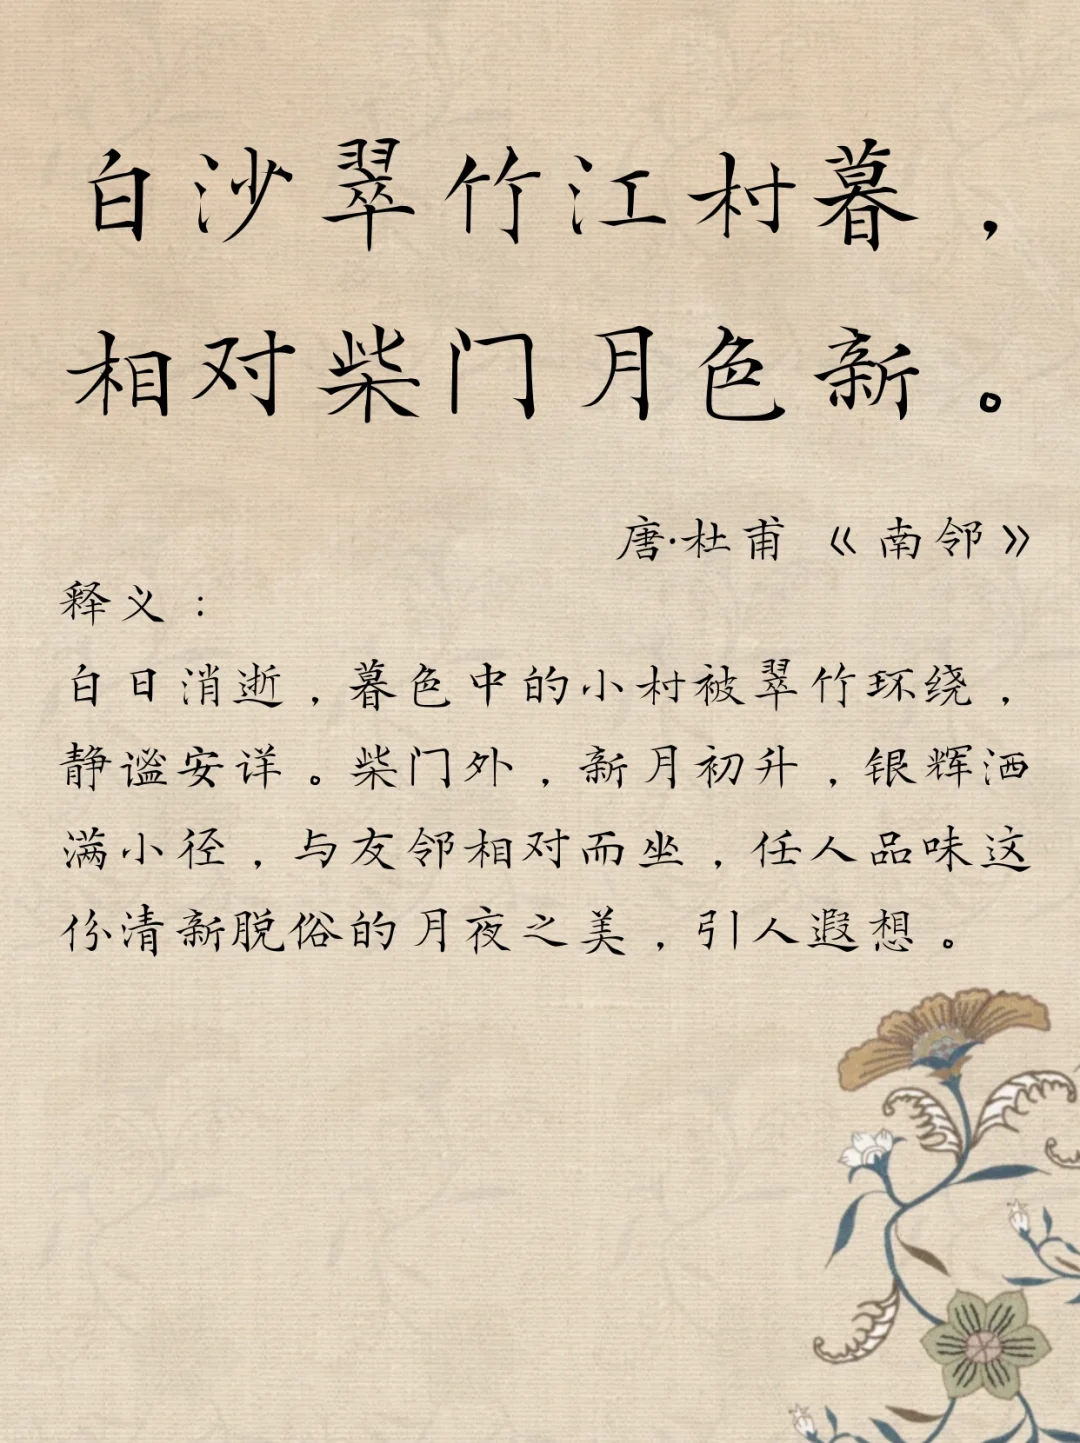 白沙翠竹江村暮，
相对柴门月色新。
唐·杜甫《南邻》
释义：
白日消逝，暮色中的小村被翠竹环绕，
静谧安详。柴门外，新月初升，银辉洒
满小径，与友邻相对而坐，任人品味这
份清新脱俗的月夜之美，引人遐想。